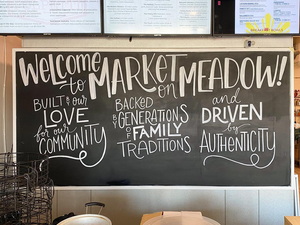 Welcome to MARKET on MEADOW!
BUILT on our
LOVE
for our
COMMUNITY
BACKED
BY GENERATIONS
OF FAMILY
TRADITIONS
and
DRIVEN
by
AUTHENTICITY